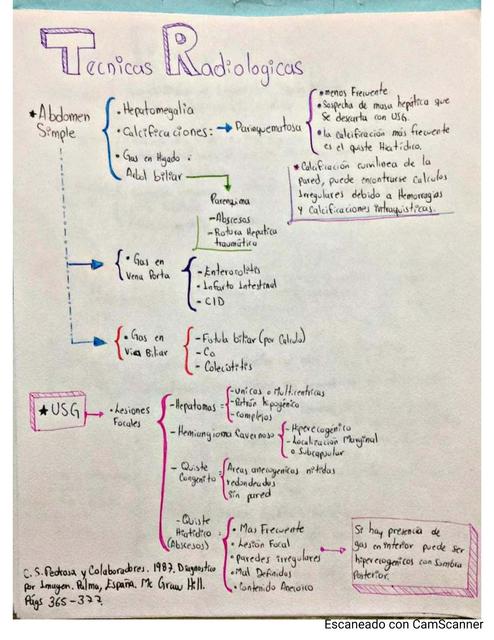 Tecnicas Radiologicas
★Abdomen
Simple
• Hepatomegalia
• Calcificaciones: → Parenquematosa
• Gas en Higado :
Arbol biliar
• menos Frecuente
• Sospecha de masa hepática que
se descarta con USG.
• la calcificación más frecuente
es el quiste Hidatídico.
* Calcificación curvilinea de la
pared, puede encontrarse calculos
irregulares debido a Hemorragias
y Calcificaciones intraquisticas.
Parenqima
- Abscesos
- Rotura Hepatica
traumática
• Gas en
Vena Porta
- Enterocolitis
- Infarto Intestinal
- CID
• Gas en
Via Biliar
- Fistula biliar (por Calculo)
- Ca
- Colecistitis
★ USG
• Lesiones
Focales
- Hepatomas =
- Unicas o Multicentricas
- Patrón hipogénico
- Complejos
- Hemiangioma Cavernoso
- Hiperecogénico
- Localización Marginal
o Subcapsular
- Quiste
Congenito
Areas anecogenicas nitidas
redondeadas
Sin pared
- Quiste
Hidatídico
(Abscesos)
• Mas Frecuente
• Lesión Focal
• paredes irregulares
• Mal Definidos
• Contenido Anecoico
Si hay presencia de
gas en interior puede ser
hiperecogenicos con sombra
Posterior.
C. S. Pedrosa y Colaboradores. 1987. Diagnostico
por Imagen. Palma, España. Mc Graw Hill.
Págs 365-377.
Escaneado con CamScanner